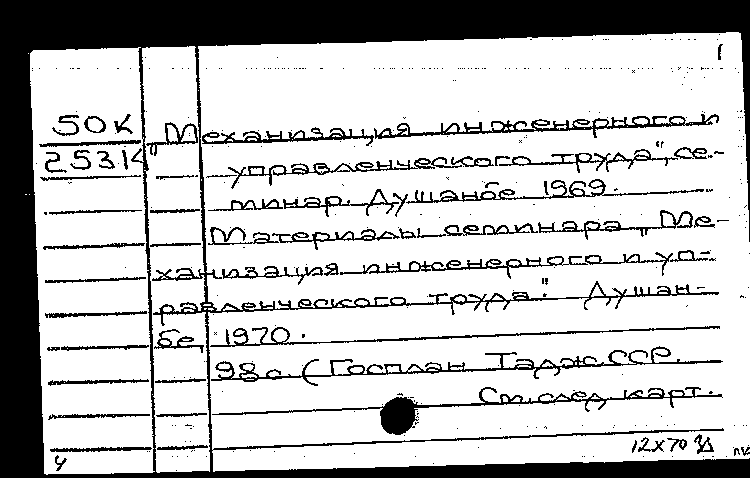 1
50К
25314
"Механизация инженерного и
управленческого труда", се-
минар. Душанбе 1969.
Материалы семинара „Ме-
ханизация инженерного и уп-
равленческого труда". Душан-
бе, 1970.
98с. (Госплан Тадж.ССР.
См.след.карт.
12х70